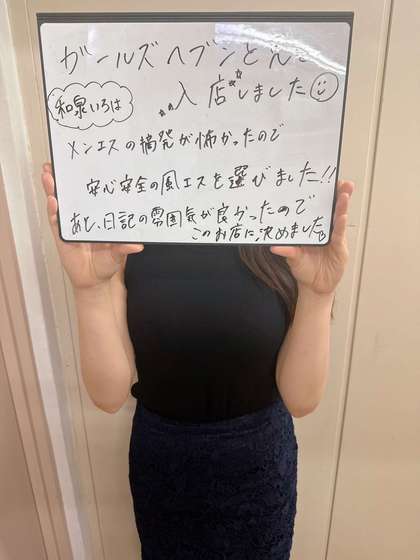 ガールズヘブンとんで
入店しました
和泉いろは
メンエスの摘発が怖かったので
安心安全の風エスを選びました!!
あと、日記の雰囲気が良かったので
このお店に決めました